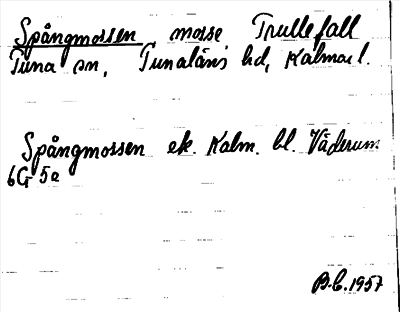 Spångmossen mosse Trullefall
Tuna sn, Tunaläns hd, Kalmar l.
Spångmossen ek. Kalm. bl. Väderum
6G 5a
B.C. 1957